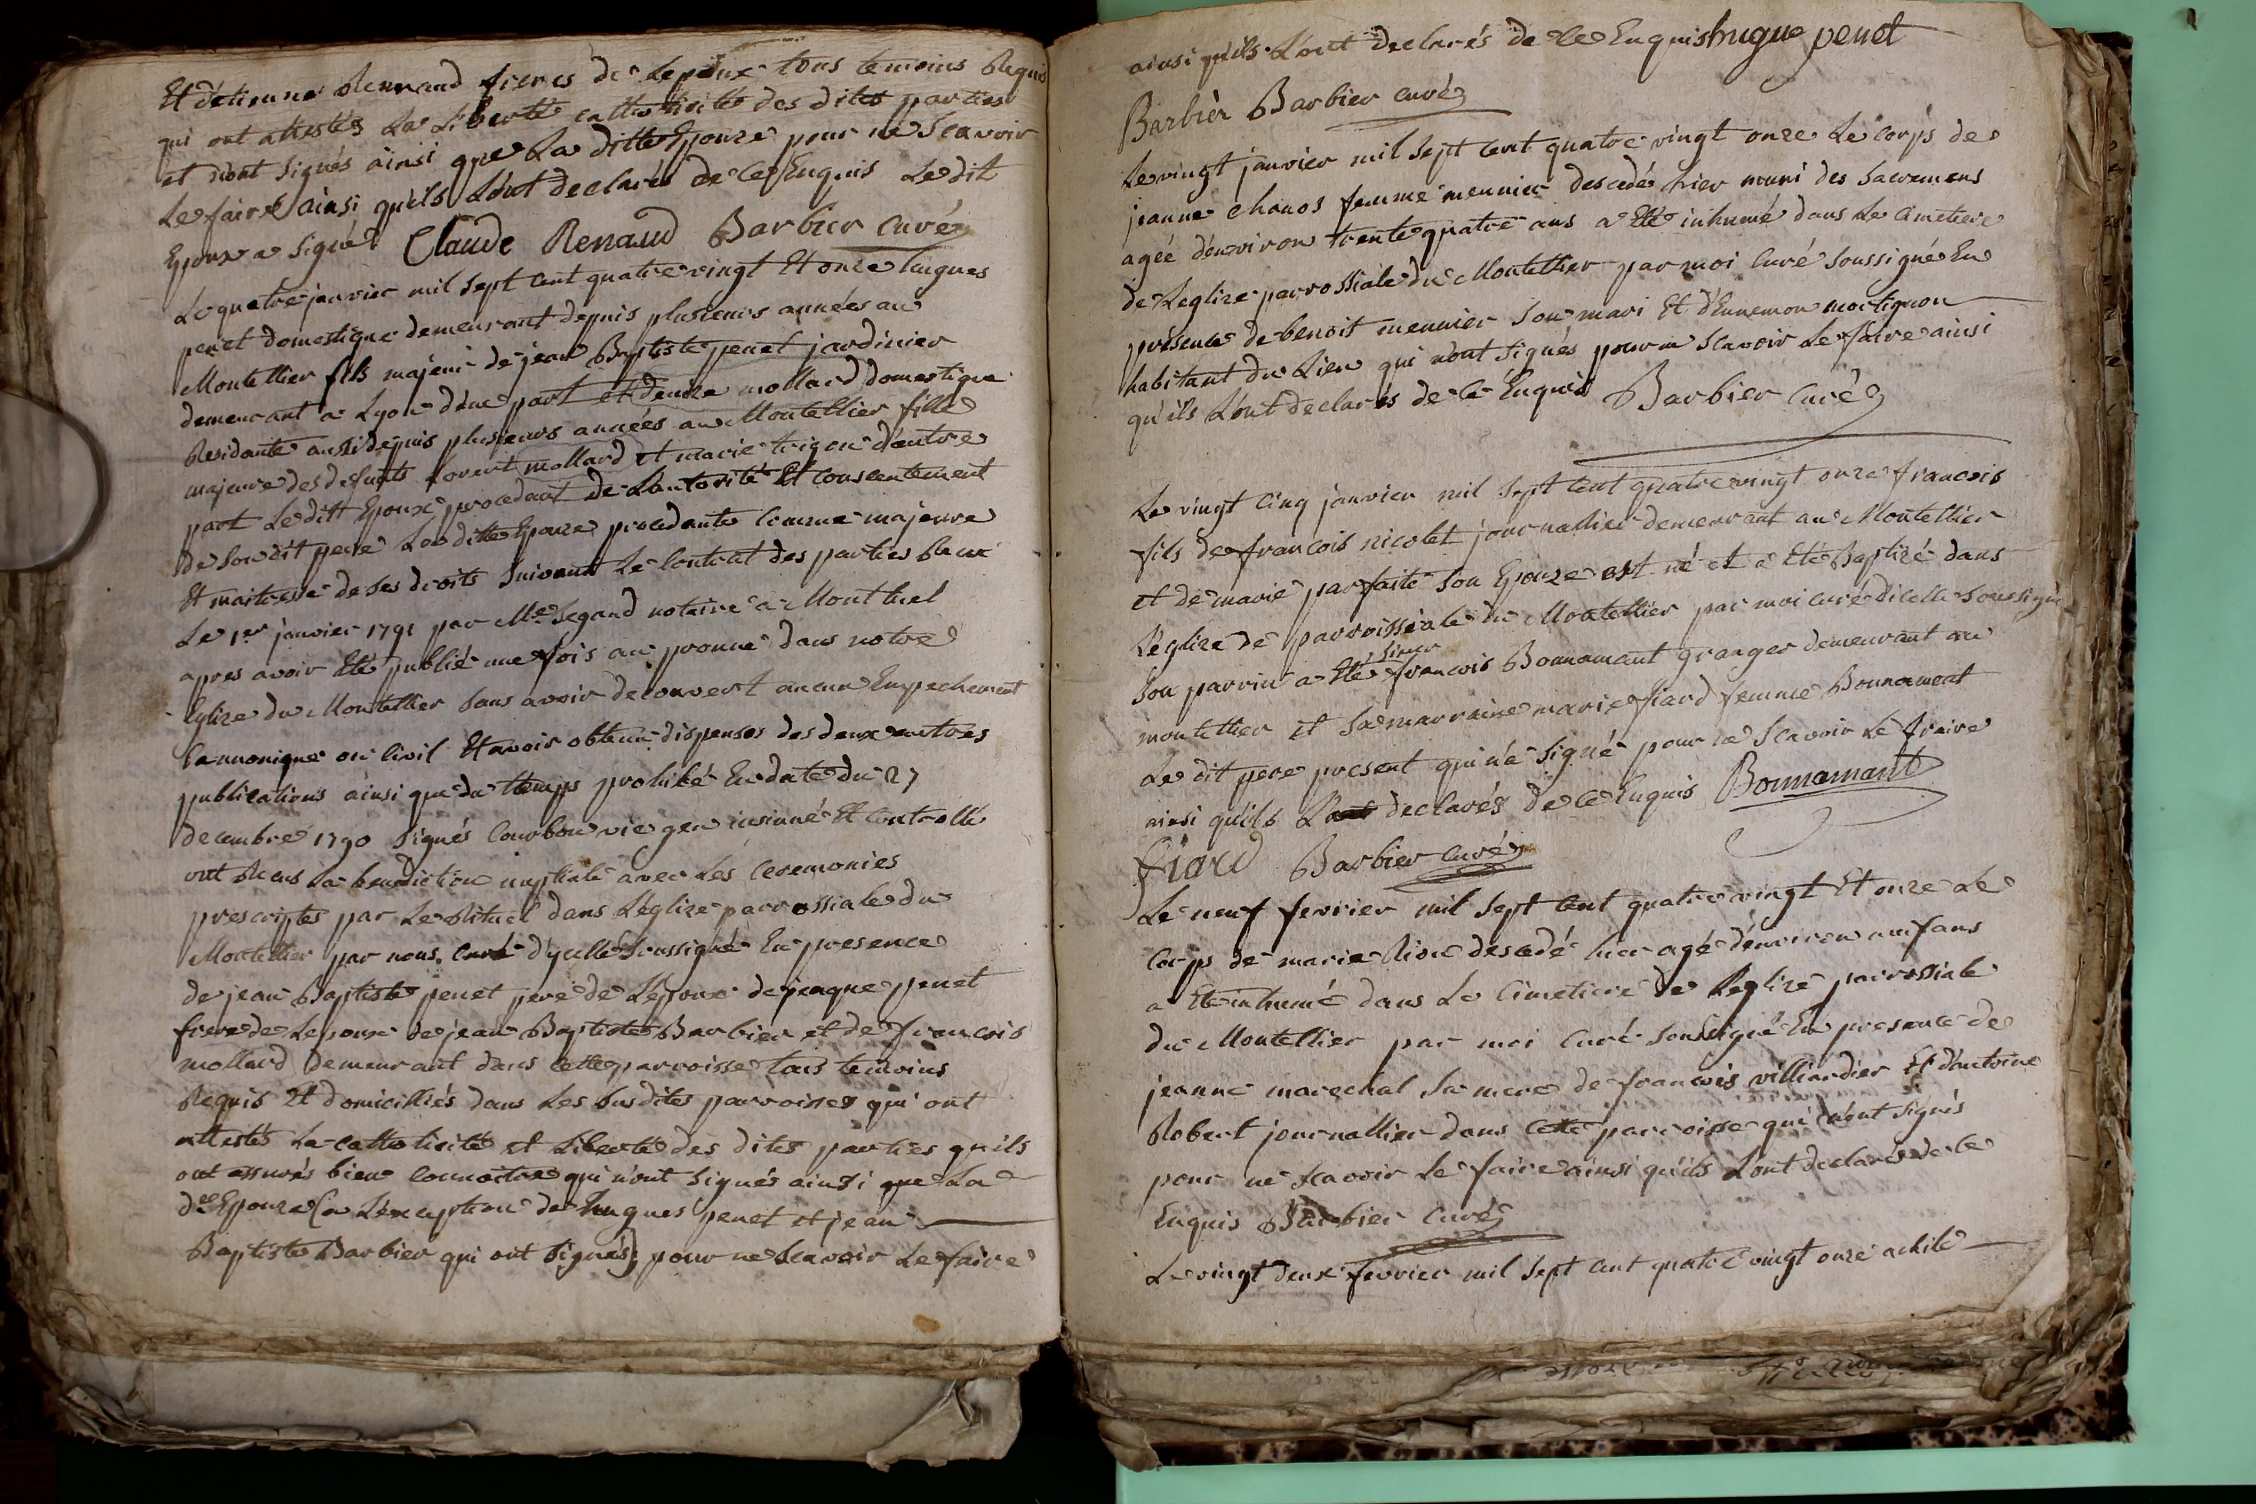 Et d'etienne Renaud freres de lepoux tous temoins Requis
qui ont attestés La Liberté catholicité des dites parties
et n'ont signés ainsi que La ditte Epouze pour ne Scavoir
Le faire ainsi quils L'ont declarés de ce Enquis Le dit
Epoux a signé Claude Renaud Barbier curé
Le quatre janvier mil sept cent quatre vingt Et onze hugues
penet domestique demeurant depuis plusieurs années au
Montellier fils majeur de jean Baptiste penet jardinier
demeurant a Lyon d'une part et mollard domestique
Residante aussi depuis plusieurs années au Montellier fille
majeure des defunts mollard et marie trigon d'autre
part Le dit Epoux procedant de L'autorité Et consentement
de Son dit pere La ditte Epouze procedante comme majeure
Et maitresse de ses droits suivant Le contrat des parties Recu
Le 1er janvier 1791 par Me Segand notaire a Montluel
apres avoir Eté publié une fois au pronne dans notre
Eglize du Montellier sans avoir decouvert aucun Empechement
Cannonique ou Civil Et avoir obtenu dispenses des deux autres
publications ainsi que du temps prohibé En date du 27
decembre 1790 signés Courbon vic gen insinué Et Controllé
ont Recus la benediction nuptiale avec Les Ceremonies
prescriptes par Le Rituel dans L'eglize parrossiale du
Montellier par nous curé d'ycelle soussigné En presence
de jean Baptiste penet pere de L'epoux de jaque penet
frere de Lepoux de jean Baptiste Barbier et de francois
mollard demeurant dans cette parroisse tous temoins
Requis Et domiciliés dans Les susdites parroisses qui ont
attestés La catholicité et Liberté des dites parties quils
ont assurés bien connoitre qui n'ont signés ainsi que La
de Epouze (a L'exception de hugues penet et jean
Baptiste Barbier qui ont signés) pour ne Scavoir Le faire
ainsi quils L'ont declarés de ce Enquis hugue penet
Barbier Barbier curé
Le vingt janvier mil sept cent quatre vingt onze Le corps de
jeanne chanos femme meunier descedé hier muni des Sacremens
agée d'environ trente quatre ans a Eté inhumé dans Le Cimetiere
de L'eglize parrossiale du Montellier par moi Curé Soussigné En
présence de benoit meunier son mari Et d'Ennemon mortignon
habitant du Lieu qui n'ont signés pour ne Scavoir Le faire ainsi
qu'ils L'ont declarés de ce Enquis Barbier Curé
Le vingt Cinq janvier mil sept cent quatre vingt onze francois
fils de francois nicolet journallier demeurant au Montellier
et de marie parfaite son Epouze est né et a Eté Baptizé dans
L'eglize de parroissiale du Montellier par moi curé d'icelle soussigné
Son parrin a Eté sieur francois Bonnamant granger demeurant au
montellier et Sa marraine marie fiard femme Bonnamant
Le dit pere present qui n'a Signé pour ne Scavoir Le fraire
ainsi qu'ils declarés de ce Enquis Bonnamant
fiard Barbier curé
Le neuf fevrier mil sept cent quatre vingt Et onze Le
Corps de marie descedé hier agé d'environ neuf ans
a Eté inhumé dans Le Cimetiere de Leglize parrossiale
du Montellier par moi Curé soussigné En presence de
jeanne marechal Sa mere de francois villiardier Et d'antoine
Robert journallier dans Cette parroisse qui n'ont signés
pour ne Scavoir Le faire ainsi qu'ils L'ont declarés de ce
Enquis Barbier Curé
Le vingt deux fevrier mil sept cent quatre vingt onze achile